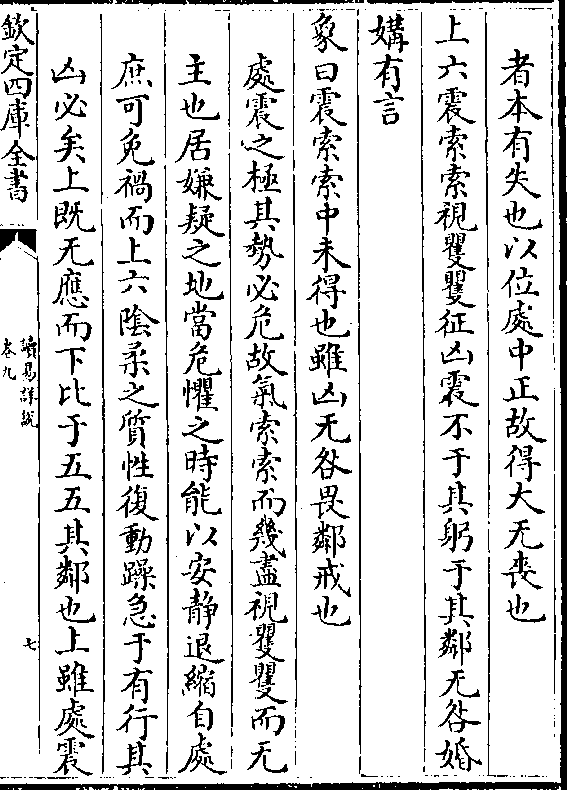 者本有失也以位處中正故得大无喪也
上六震索索視矍矍征凶震不于其躬于其鄰无咎婚
媾有言
象曰震索索中未得也雖凶无咎畏鄰戒也
處震之極其勢必危故氣索索而幾盡視矍矍而无
主也居嫌疑之地當危懼之時能以安静退縮自處
庶可免禍而上六陰柔之質性復動躁急于有行其
凶必矣上既无應而下比于五五其鄰也上雖處震
欽定四庫全書
讀易詳說
卷九
七